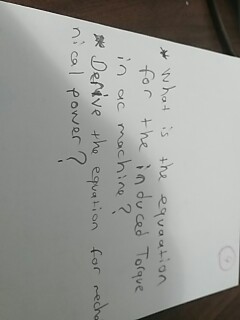 * What is the equation
for the induced Torque
in ac machine?
* Derive the equation for mecha
nical power?